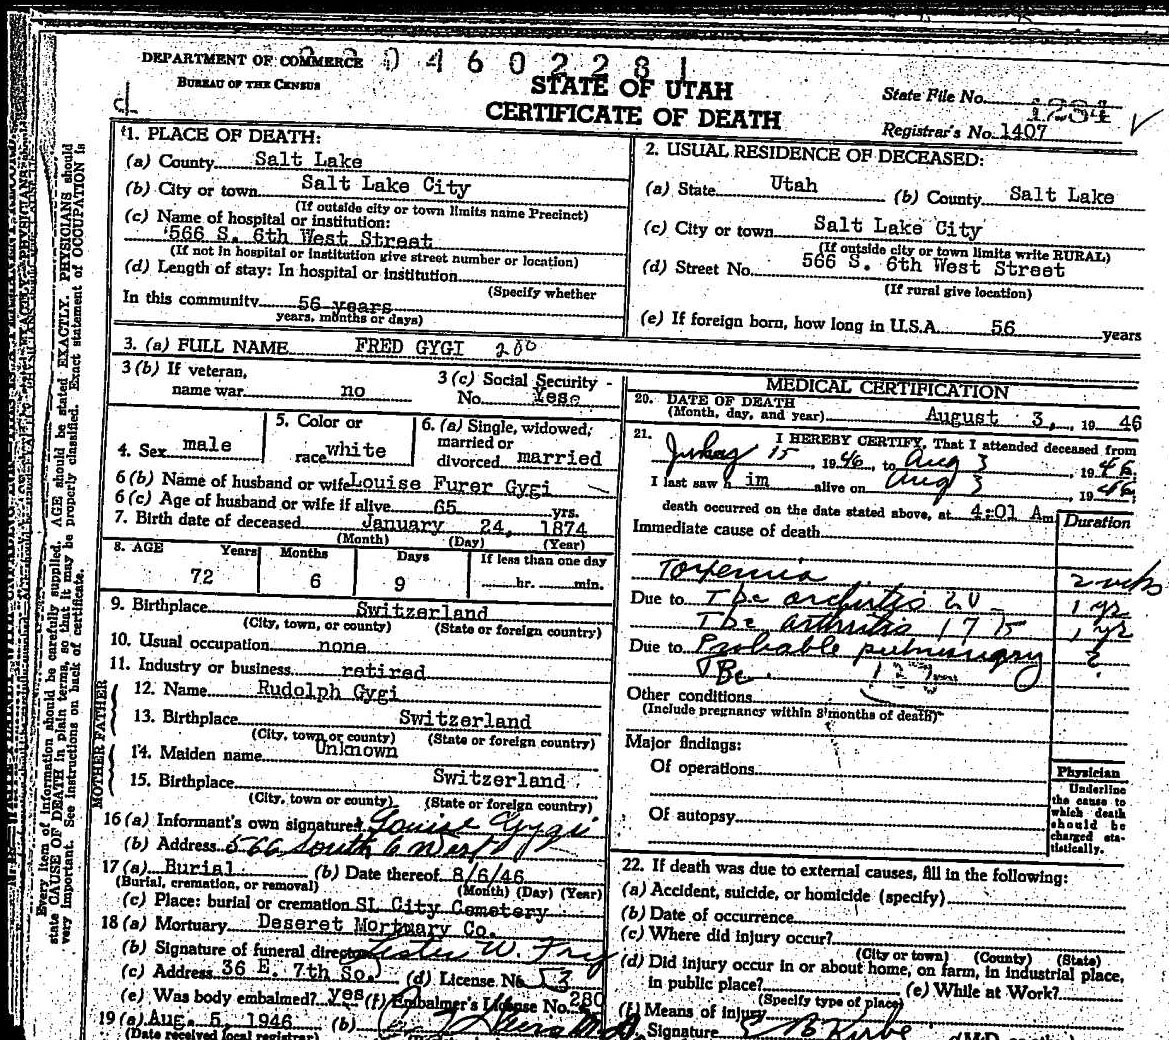 DEPARTMENT OF COMMERCE
BUREAU OF THE CENSUS
0 4 6 0 2 2 8 1
STATE OF UTAH
CERTIFICATE OF DEATH
State File No. 1284
Registrar's No. 1407
1. PLACE OF DEATH:
(a) County Salt Lake
(b) City or town Salt Lake City
(If outside city or town limits name Precinct)
(c) Name of hospital or institution:
566 S. 6th West Street
(If not in hospital or institution give street number or location)
(d) Length of stay: In hospital or institution
(Specify whether
In this community 56 years
years, months or days)
2. USUAL RESIDENCE OF DECEASED:
(a) State Utah (b) County Salt Lake
(c) City or town Salt Lake City
(If outside city or town limits write RURAL)
(d) Street No. 566 S. 6th West Street
(If rural give location)
(e) If foreign born, how long in U.S.A. 56 years
3. (a) FULL NAME FRED GYGI 200
3 (b) If veteran,
name war no
3 (c) Social Security
No.
4. Sex male
5. Color or
race white
6. (a) Single, widowed,
married or
divorced married
6 (b) Name of husband or wife Louise Furer Gygi
6 (c) Age of husband or wife if alive 65 yrs.
7. Birth date of deceased January 24, 1874
(Month) (Day) (Year)
8. AGE Years Months Days If less than one day
72 6 9 hr. min.
9. Birthplace Switzerland
(City, town, or county) (State or foreign country)
10. Usual occupation none
11. Industry or business retired
FATHER
12. Name Rudolph Gygi
13. Birthplace Switzerland
(City, town or county) (State or foreign country)
MOTHER
14. Maiden name Unknown
15. Birthplace Switzerland
(City, town or county) (State or foreign country)
16 (a) Informant's own signature Louise Gygi
(b) Address 566 South 6 West
17 (a) Burial (b) Date thereof 8/6/46
(Burial, cremation, or removal) (Month) (Day) (Year)
(c) Place: burial or cremation SL City Cemetery
18 (a) Mortuary Deseret Mortuary Co.
(b) Signature of funeral director Lester W. Fry
(c) Address 36 E. 7th So. (d) License No. 53
(e) Was body embalmed? yes (f) Embalmer's License No. 280
19 (a) Aug. 5, 1946 (b)
(Date received local registrar)
MEDICAL CERTIFICATION
20. DATE OF DEATH
(Month, day, and year) August 3, 19 46
21. I HEREBY CERTIFY, That I attended deceased from
15 1946, to Aug 3 1946
I last saw him alive on Aug 3, 1946
death occurred on the date stated above, at 4:01 Am
Duration
Immediate cause of death
Toxemia 2 wks
Due to Tbc orchitis 20 1 yr
Tbc arthritis 17 15 1 yr
Due to Probable pulmonary ?
TBc.
Other conditions
(Include pregnancy within 3 months of death)
Major findings:
Of operations
Of autopsy
Physician
Underline
the cause to
which death
should be
charged sta-
tistically.
22. If death was due to external causes, fill in the following:
(a) Accident, suicide, or homicide (specify)
(b) Date of occurrence
(c) Where did injury occur?
(City or town) (County) (State)
(d) Did injury occur in or about home, on farm, in industrial place,
in public place? (e) While at Work?
(Specify type of place)
(f) Means of injury
Signature
Every item of information should be carefully supplied. AGE should be stated EXACTLY. PHYSICIANS should
state CAUSE OF DEATH in plain terms, so that it may be properly classified. Exact statement of OCCUPATION is
very important. See instructions on back of certificate.